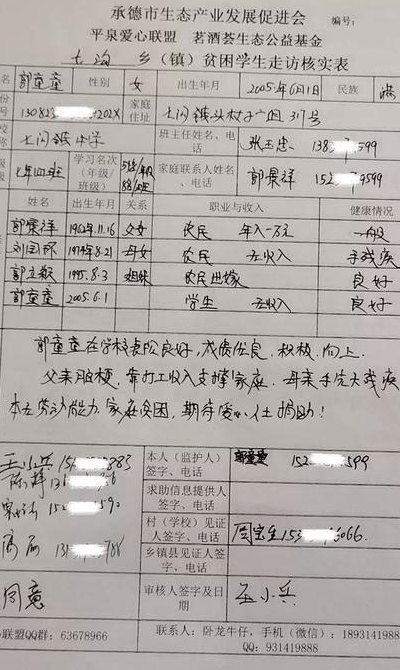 承德市生态产业发展促进会 编号:
平泉爱心联盟 茗酒荟生态公益基金
七沟 乡(镇)贫困学生走访核实表
名 郭童童 性别 女 出生年月 2005年6月1日 民族 满
号 13082 202X 家庭住址 七沟镇 村 317号
七沟镇中学 班主任姓名、电话 张玉忠 138 599
七年四班 学习名次(年级/班级) 家庭联系人姓名、电话 郭景祥 152 9599
姓名 出生年月 关系 职业与收入 健康情况
郭景祥 1962.11.16 父女 农民 年入一万元 一般
刘国环 1974.8.21 母女 农民 无收入 手残疾
郭立敏 1995.8.3 姐妹 农民出嫁 良好
郭童童 2005.6.1 学生 无收入 良好
郭童童在学校表现良好,成绩优良,积极向上。
父亲脑梗,靠打工收入支撑家庭。母亲手先天残疾
本无劳动能力,家庭贫困,期待爱心人士捐助!
王小兵 883 本人(监护人)签字、电话 郭童童 152 599
求助信息提供人签字、电话
590 村(学校)见证人签字、电话 153 6066
乡镇县见证人签字、电话
同意 审核人签字及日期 王小兵
联盟QQ群:63678966 联系人:卧龙牛仔,手机(微信):18931419888
QQ:931419888